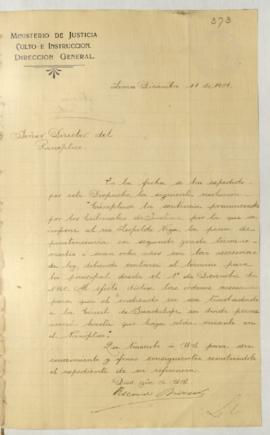 373
MINISTERIO DE JUSTICIA
CULTO E INSTRUCCION.
DIRECCIÓN GENERAL.
Lima, Diciembre 11 de 1901.
Señor Director del
Panóptico.
En la fecha se ha expedido
por este Despacho la siguiente resolucion:
"Cúmplase la sentencia pronunciada
por los tribunales de por la que se
impone al reo Leopoldo Vega la pena de
penitenciaria en segundo grado, término
ó sean ocho años con las accesorias
de ley, debiendo contarse el término para
la principal desde el 1º de Diciembre de
Al efecto díctese las ordenes necesarias
para que el indicado reo sea trasladado
á la Carcel de Guadalupe en donde perma
necerá hasta que haya celda vacante en
el Panóptico".
Que trascribo á Ud. para su
conocimiento y fines consiguientes remitiéndole
el expediente de su referencia.
Dios gue. á Ud.